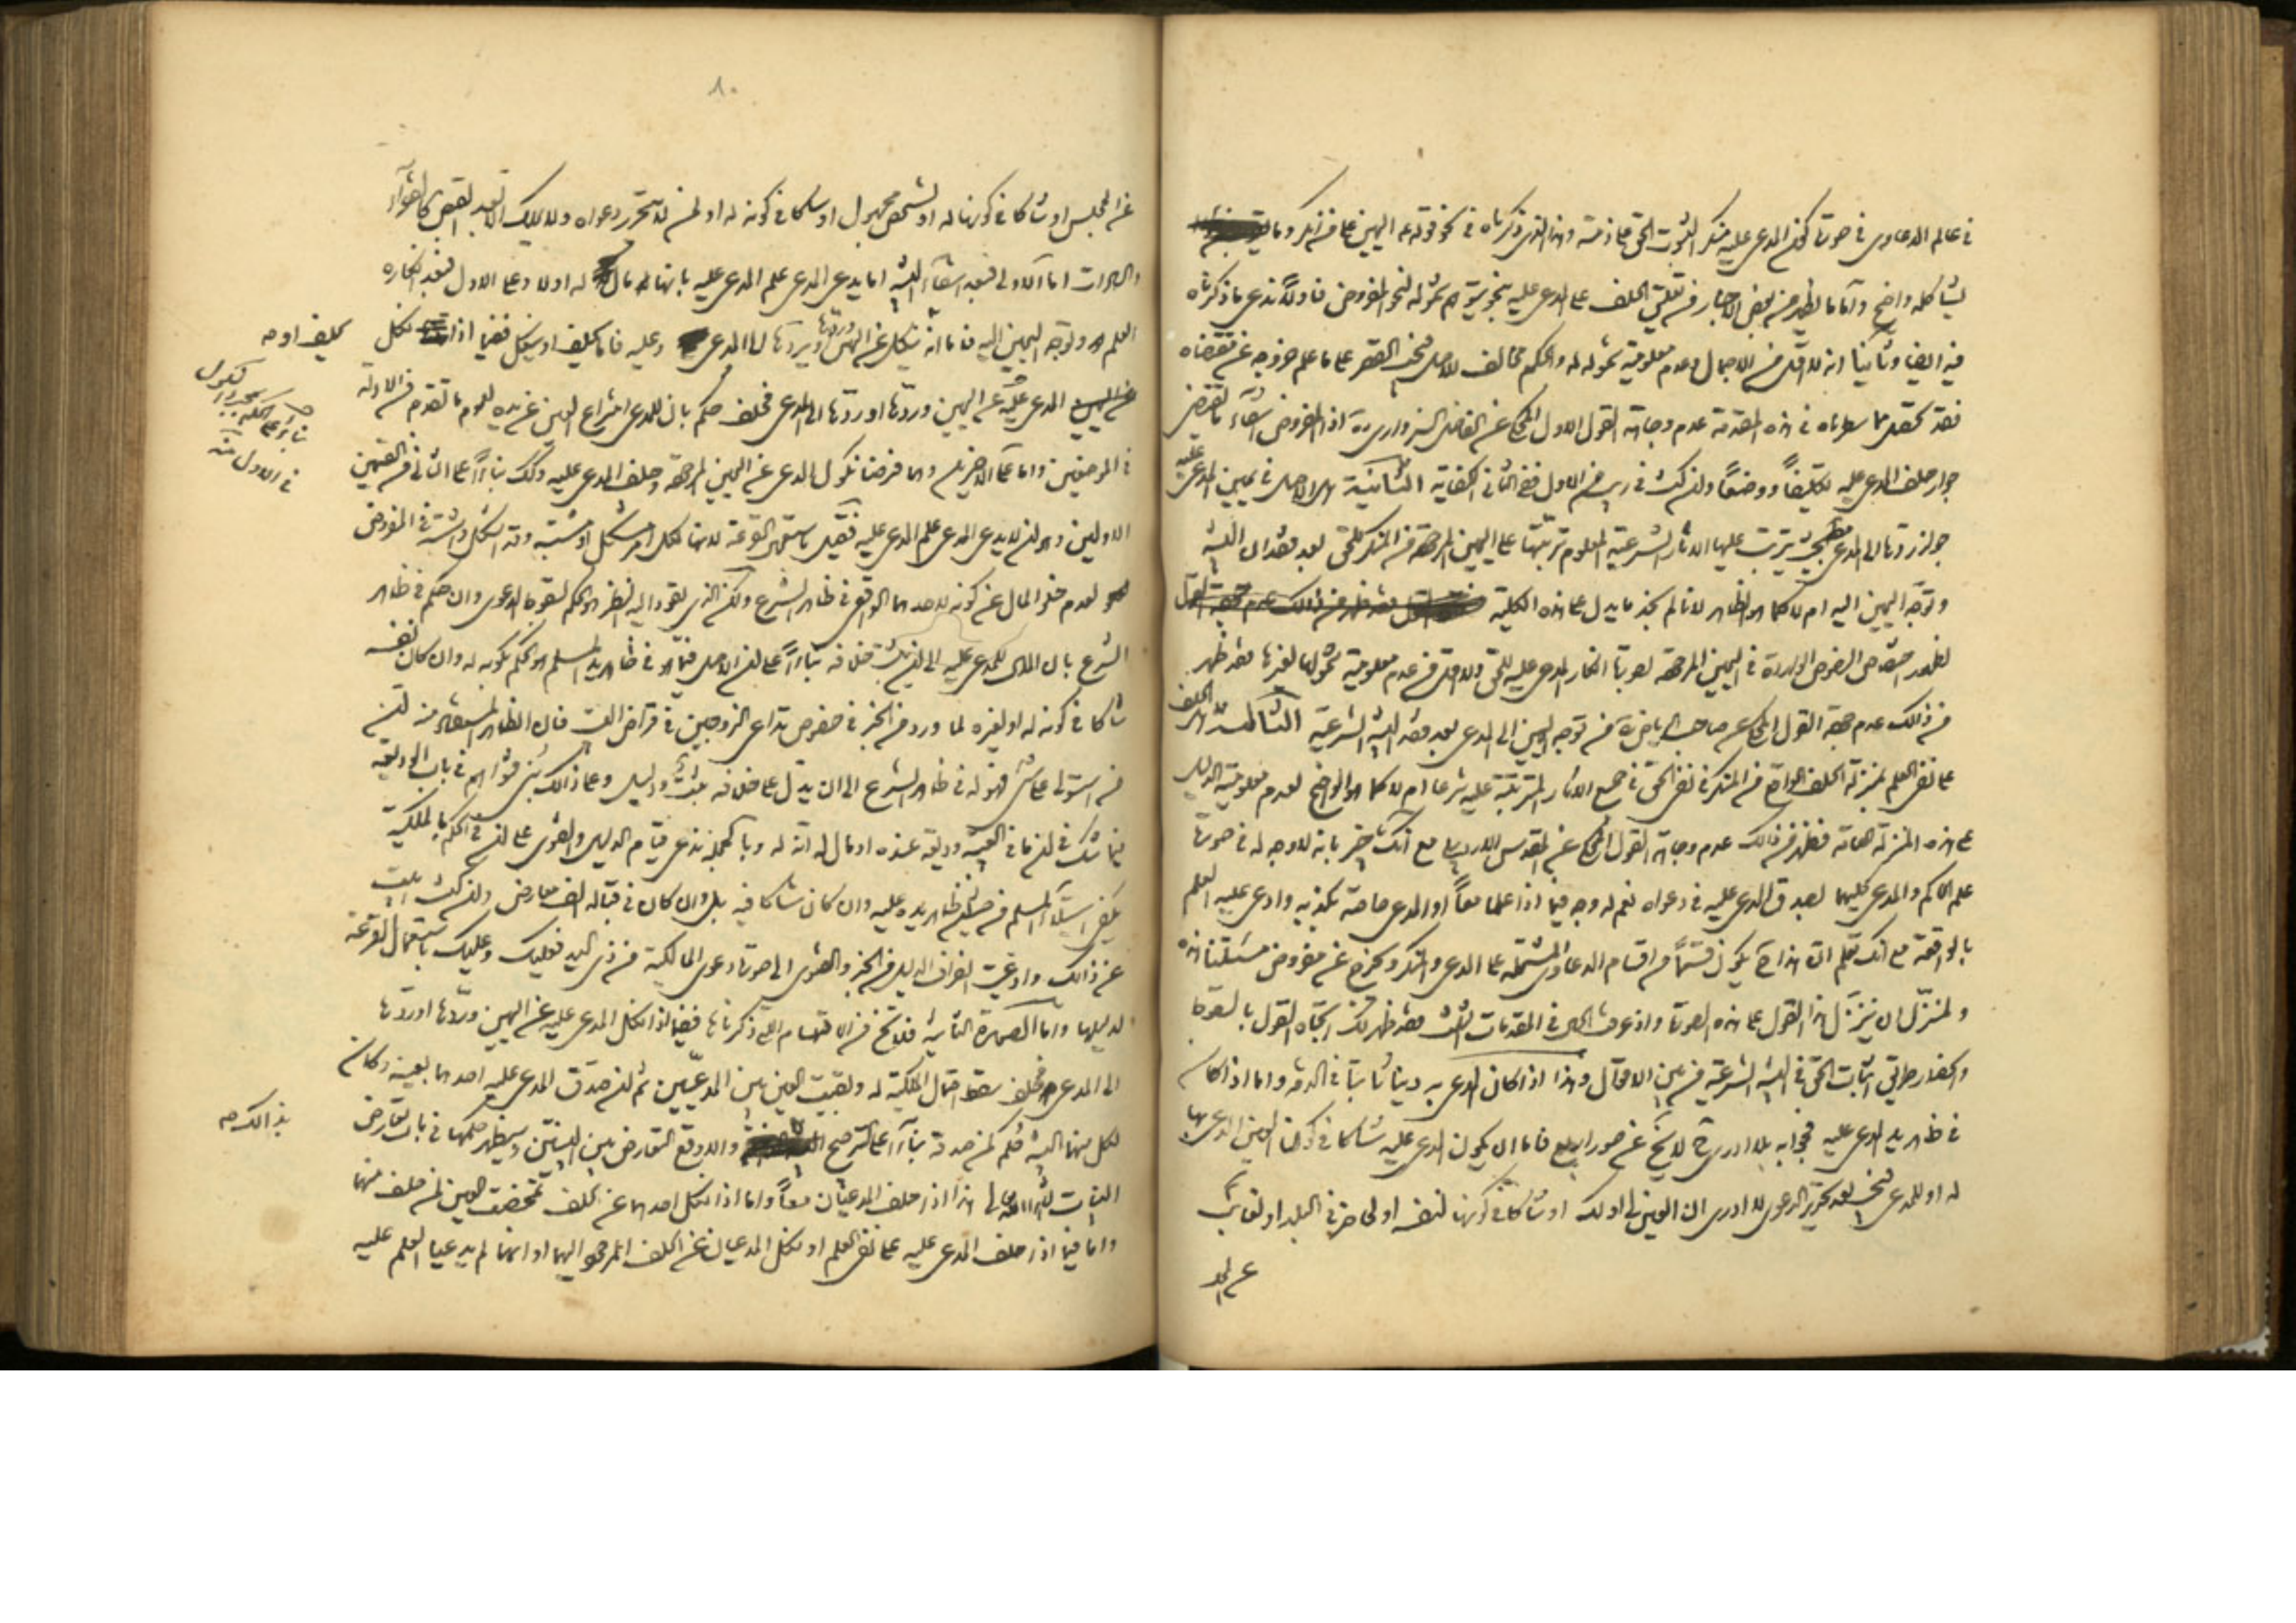 في عالم الدعاوى في صورة كون المدعى عليه منكر الثبوت الحق في ذمته وهذا الذي ذكرناه في نحو قوله ع اليمين على من انكر وما
يشاكله واضح واما ما يظهر من بعض الاخبار من تعلق الحلف على المدعى عليه بنحو شموله لنحو المفروض فاولا ندعي ما ذكرناه
فيه ايضا وثانيا انه لا اقل من الاجمال وعدم معلومية شموله له والحكم مخالف للاصل فيجب القصر على ما علم خروجه عن مقتضاه
فقد تحقق مما سطرناه في هذه المقدمة عدم وجاهة القول الاول المحكي عن الفاضل السبزواري ره اذ المفروض انتفاء ما يقتضي
جواز حلف المدعى عليه تكليفا ووضعا ولئن كنت في ريب من الاول ففي الثاني الكفاية الثانية هل الاصل في يمين المدعى عليه
جواز ردها الى المدعي بحيث يترتب عليها الاثار الشرعية المعلوم ترتبها على اليمين المرجعة من المنكر للحق بعد فقدان البينة
وتوجه اليمين اليه ام لا كما هو الظاهر لانا لم نجد ما يدل على هذه الكلية
لظهور اختصاص النصوص الواردة في اليمين المرجعة بصورة انكار المدعى عليه للحق ولا اقل من عدم معلومية شمولها لغيرها فقد ظهر
من ذلك عدم صحة القول المحكي عن صاحب الرياض ره من توجه اليمين الى المدعي بعد فقد البينة الشرعية الثالثة هل الحلف
على نفي العلم بمنزلة الحلف الواقع من المنكر في نفي الحق في جميع الاثار المترتبة عليه شرعا ام لا كما هو الواضح لعدم معلومية الدليل
على هذه المنزلة العامة فظهر من ذلك عدم وجاهة القول المحكي عن المقدس الاردبيلي مع انك خبير بانه لا وجه له في صورة
علم الحاكم والمدعي كليهما بصدق المدعى عليه في دعواه نعم له وجه فيما اذا علما معا او المدعي خاصة بكذبه وادعى عليه العلم
بالواقعة مع انك تعلم ان هذا ح يكون قسما من اقسام الدعاوى المشتملة على المدعي والمنكر وتخرج عن مفروض مسئلتنا هذه
ولمنزل ان ينزل هذا القول على هذه الصورة واذ عرفت الحال في المقدمات الثلث فقد ظهر لك اتجاه القول بالسقوط
وانحصار طريق اثبات الحق في البينة الشرعية من بين الاقوال وهذا اذا كان المدعى به دينا ثابتا في الذمة واما اذا كان
في ظاهر يد المدعى عليه فجوابه بلا ادري ح لا يخلو عن صور اربع فاما ان يكون المدعى عليه شاكا في كون العين المدعى بها
له او للمدعي فيجيب بعد تحرير الدعوى لا ادري ان العين لي او لك او شاكا في كونها لنفسه او لحاضر في البلد او لغائب
عن المجلس
٨٠
عن المجلس او شاكا في كونها له او لشخص مجهول او شاكا في كونه له او لمن لا تتحرر دعواه
والخيرات اما الاولى فبعد انتفاء البينة اما يدعي المدعي علم المدعى عليه بانها مال له او لا وعلى الاول فبعد انكاره
العلم وتوجه اليمين اليه فاما انه ينكل عن اليمين ويردها الى المدعي وعليه فاما يحلف او ينكل ففيما اذا نكل
يحلف او صه
المدعى عليه عن اليمين وردها او ردتها الى المدعي فحلف حكم بان للمدعي انتزاع العين عن يده لعموم ما تقدم من الادلة
بناء على الحكم بمجرد النكول
في الاول منه
في الموضعين واما على الاخيرين وهما فرضنا نكول المدعي عن اليمين المرجعة وحلف المدعى عليه وذلك بناء على الثاني من القسمين
الاولين وهو ان لا يدعي المدعي علم المدعى عليه فقيل باستعمال القرعة لانها لكل امر مشكل او مشتبه
لعدم خلو المال عن كونه لاحدهما الواقع في ظاهر الشرع ولكن الذي يقود اليه النظر هو الحكم بسقوط الدعوى وان حكم في ظاهر
الشرع بان المال للمدعى عليه الى ان يثبت خلافه بناء على ان الاصل فيما هو في ظاهر يد المسلم هو الحكم بكونه له وان كان نفسه
شاكا في كونه له او لغيره لما ورد من الخبر في خصوص تداعي الزوجين في فان الظاهر المستفاد منه ان
من استولى على شيء فهو له في ظاهر الشرع الى ان يدل على خلافه بينة ودليل وعلى ذلك بنى فتواهم في باب الوديعة
فيما شك في ان ما في العيبة وديعة عنده او مال له انه له وبالجملة ندعي قيام الدليل والفتوى على ان في الحكم بالملكية
يكفي استيلاء المسلم من حيث ظاهر يده عليه وان كان شاكا فيه بل وان كان في قباله الف معارض ولئن كنت ابيت
عن ذلك وادعيت انصراف الدليل من الخبر والفتوى الى صورة دعوى المالكية من ذي اليد فعليك باستعمال القرعة
لدليلها واما الصورة الثانية فلا تخلو من الاقسام التي ذكرناها ففيما اذا نكل المدعى عليه عن اليمين وردها او ردها
الى المدعي فحلف سقط احتمال الملكية له وبقيت العين بين المدعيين ثم ان صدق المدعى عليه احدهما بعينه وكان
لكل منهما البينة حكم لمن صدقه بناء على الترجيح والا وقع التعارض بين البينتين وسيظهر حكمها في باب تعارض
بذلك صه
البينات ان شاء الله تعالى هذا اذا حلف المدعيان معا واما اذا نكل احدهما عن الحلف تمحضت العين لمن حلف منهما
واما فيما اذا حلف المدعى عليه على نفي العلم او نكل المدعيان عن الحلف المرجع اليهما او انهما لم يدعيا العلم عليه